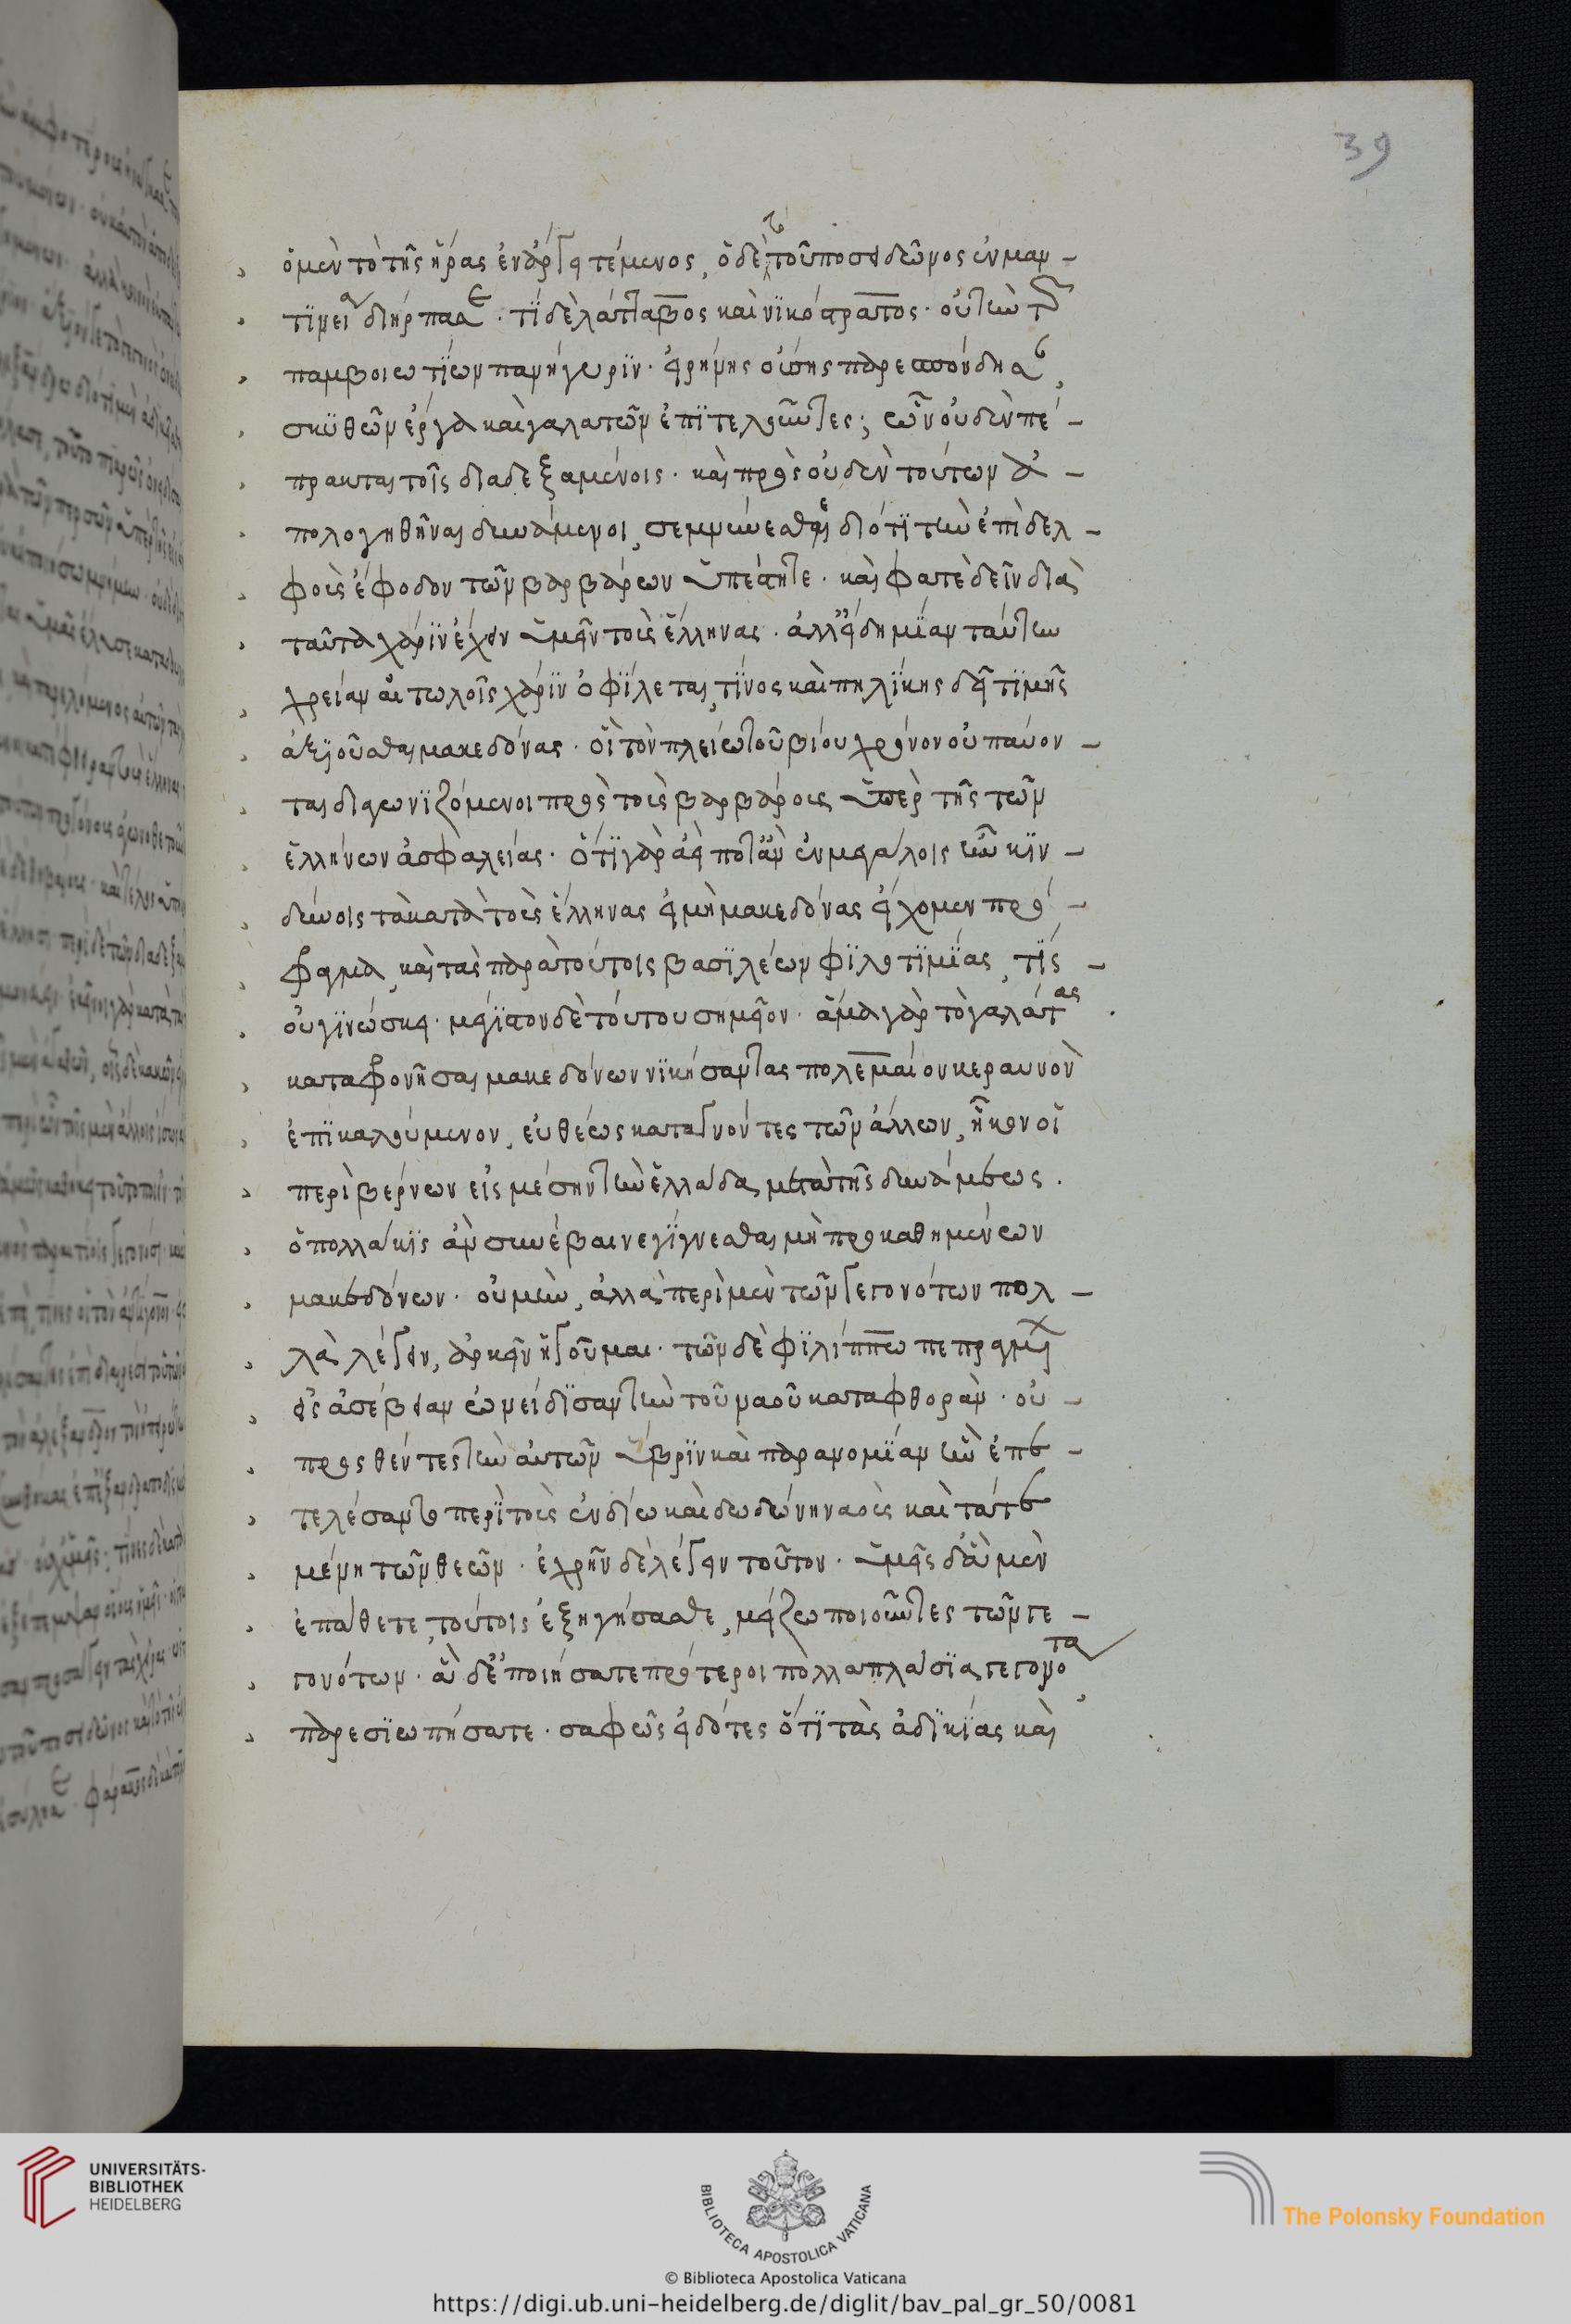 ὁ μὲν τὸ τῆς ἥρας ἐν ἄργει τέμενος, ὁ δὲ τὸ τοῦ ποσειδῶνος ἐν μαν-
τινεία διήρπασε. τί δὲ λάτταβος καὶ νικόστρατος. οὐ τὴν τῶν
παμβοιωτίων πανήγυριν. εἰρήνης οὔσης παρεσπόνδησαν,
σκυθῶν ἔργα καὶ γαλατῶν ἐπιτελοῦντες; ὧν οὐδὲν πέ-
πρακται τοῖς διαδεξαμένοις. καὶ πρὸς οὐδὲν τούτων ἀ-
πολογηθῆναι δυνάμενοι, σεμνύνεσθαι διότι τὴν ἐπὶ δελ-
φοὺς ἔφοδον τῶν βαρβάρων ὑπέστητε. καὶ φατὲ δεῖν διὰ
ταῦτα χάριν ἔχειν ὑμῖν τοὺς ἕλληνας. ἀλλ' εἰ δὴ μίαν ταύτην
χρείαν αἰτωλοῖς χάριν ὀφίλεται, τίνος καὶ πηλίκης δεῖ τιμῆς
ἀξιοῦσθαι μακεδόνας. οἳ τὸν πλείω τοῦ βίου χρόνον οὐ παύον-
ται διαγωνιζόμενοι πρὸς τοὺς βαρβάρους ὑπὲρ τῆς τῶν
ἑλλήνων ἀσφαλείας. ὅτι γὰρ ἀεί ποτ' ἂν ἐν μεγάλοις ἦν κιν-
δύνοις τὰ κατὰ τοὺς ἕλληνας εἰ μὴ μακεδόνας εἴχομεν πρό-
φραγμα, καὶ τὰς παρὰ τούτοις βασιλέων φιλοτιμίας, τίς-
οὐ γινώσκει. μέγιστον δὲ τούτου σημεῖον. ἅμα γὰρ τὸ γαλάτας
καταφρονῆσαι μακεδόνων νικήσαντας πολεμαῖον κεραυνὸν
ἐπικαλούμενον, εὐθέως καταγνόντες τῶν ἄλλων, ἧκον οἱ
περὶ βέρνων εἰς μέσην τὴν ἑλλάδα μετὰ τῆς δυνάμεως.
ὃ πολλάκις ἂν συνέβαινε γίγνεσθαι μὴ προκαθημένων
μακεδόνων. οὐ μὴν, ἀλλὰ περὶ μὲν τῶν γεγονότων πολ-
λὰ λέγειν, ἀρκεῖν ἡγοῦμαι. τῶν δὲ φιλίππω πεπραγμένων
εἰς ἀσέβειαν ὠνείδισαν τὴν τοῦ ναοῦ καταφθοράν. οὐ-
προσθέντες τὴν αὐτῶν ὕβριν καὶ παρανομίαν ἣν ἐπε-
τελέσαντο περὶ τοὺς ἐν δίω καὶ δωδώνη ναοὺς καὶ τὰ τε-
μένη τῶν θεῶν. ἐχρῆν δὲ λέγειν τοῦτον. ὑμεῖς δ' ἃ μὲν
ἐπάθετε, τούτοις ἐξηγήσασθε, μείζω ποιοῦντες τῶν γε-
γονότων. ἃ δ' ἐποιήσατε πρότεροι πολλαπλάσια γεγονότα,
παρεσιωπήσατε. σαφῶς εἰδότες ὅτι τὰς ἀδικίας καὶ
39
UNIVERSITÄTS-
BIBLIOTHEK
HEIDELBERG
BIBLIOTECA APOSTOLICA VATICANA
The Polonsky Foundation
© Biblioteca Apostolica Vaticana
https://digi.ub.uni-heidelberg.de/diglit/bav_pal_gr_50/0081